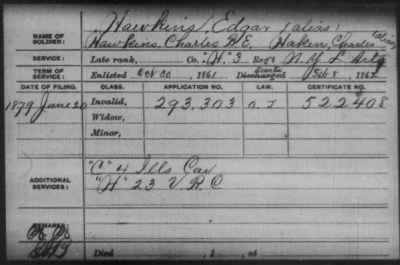 Hawkins, Edgar (alias)
NAME OF SOLDIER: Hawkins, Charles W.E. Haken, Charles (alias)
SERVICE: Late rank, Co. "H." 3 Reg't N.Y. L. Arty
TERM OF SERVICE: Enlisted Oct 30, 1861 Discharged Feb. 8, 1862
DATE OF FILING. CLASS. APPLICATION NO. LAW. CERTIFICATE NO.
1879 June 20 Invalid, 293,303 522408
Widow,
Minor,
ADDITIONAL SERVICES: "C" 4 Ills Cav
"H" 23 V.R.C
REMARKS:
Died , 1 , at